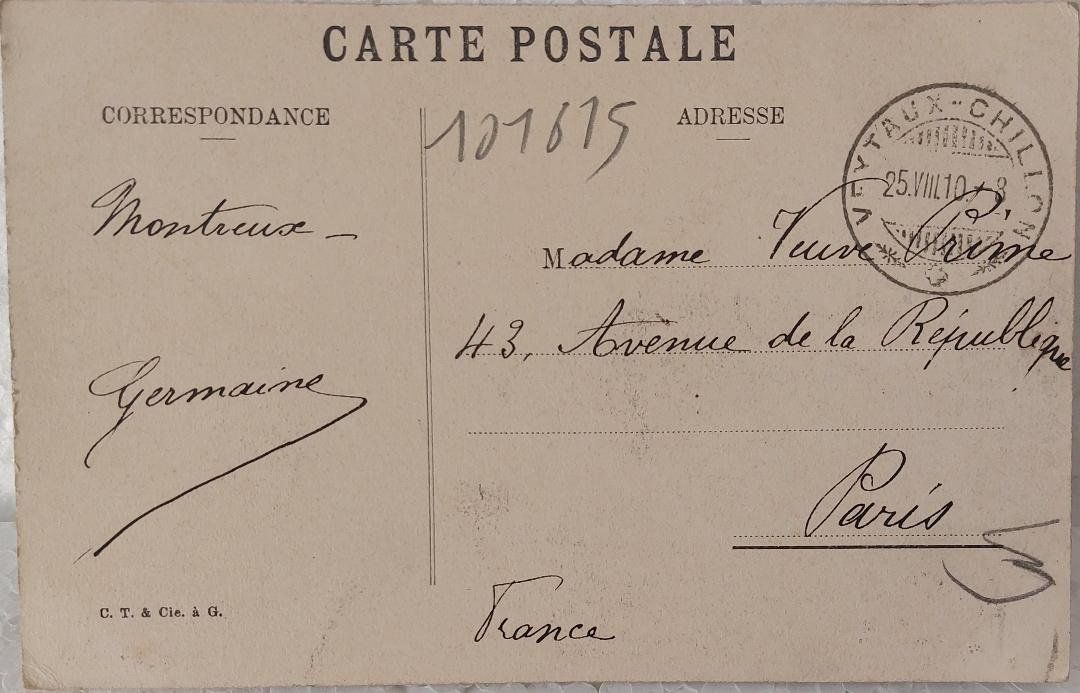 CARTE POSTALE
CORRESPONDANCE
ADRESSE
101615
VEYTAUX-CHILLON
25.VIII.10.-8
Montreux
Madame Veuve Prime
43, Avenue de la République
Germaine
Paris
C. T. & Cie. à G.
France